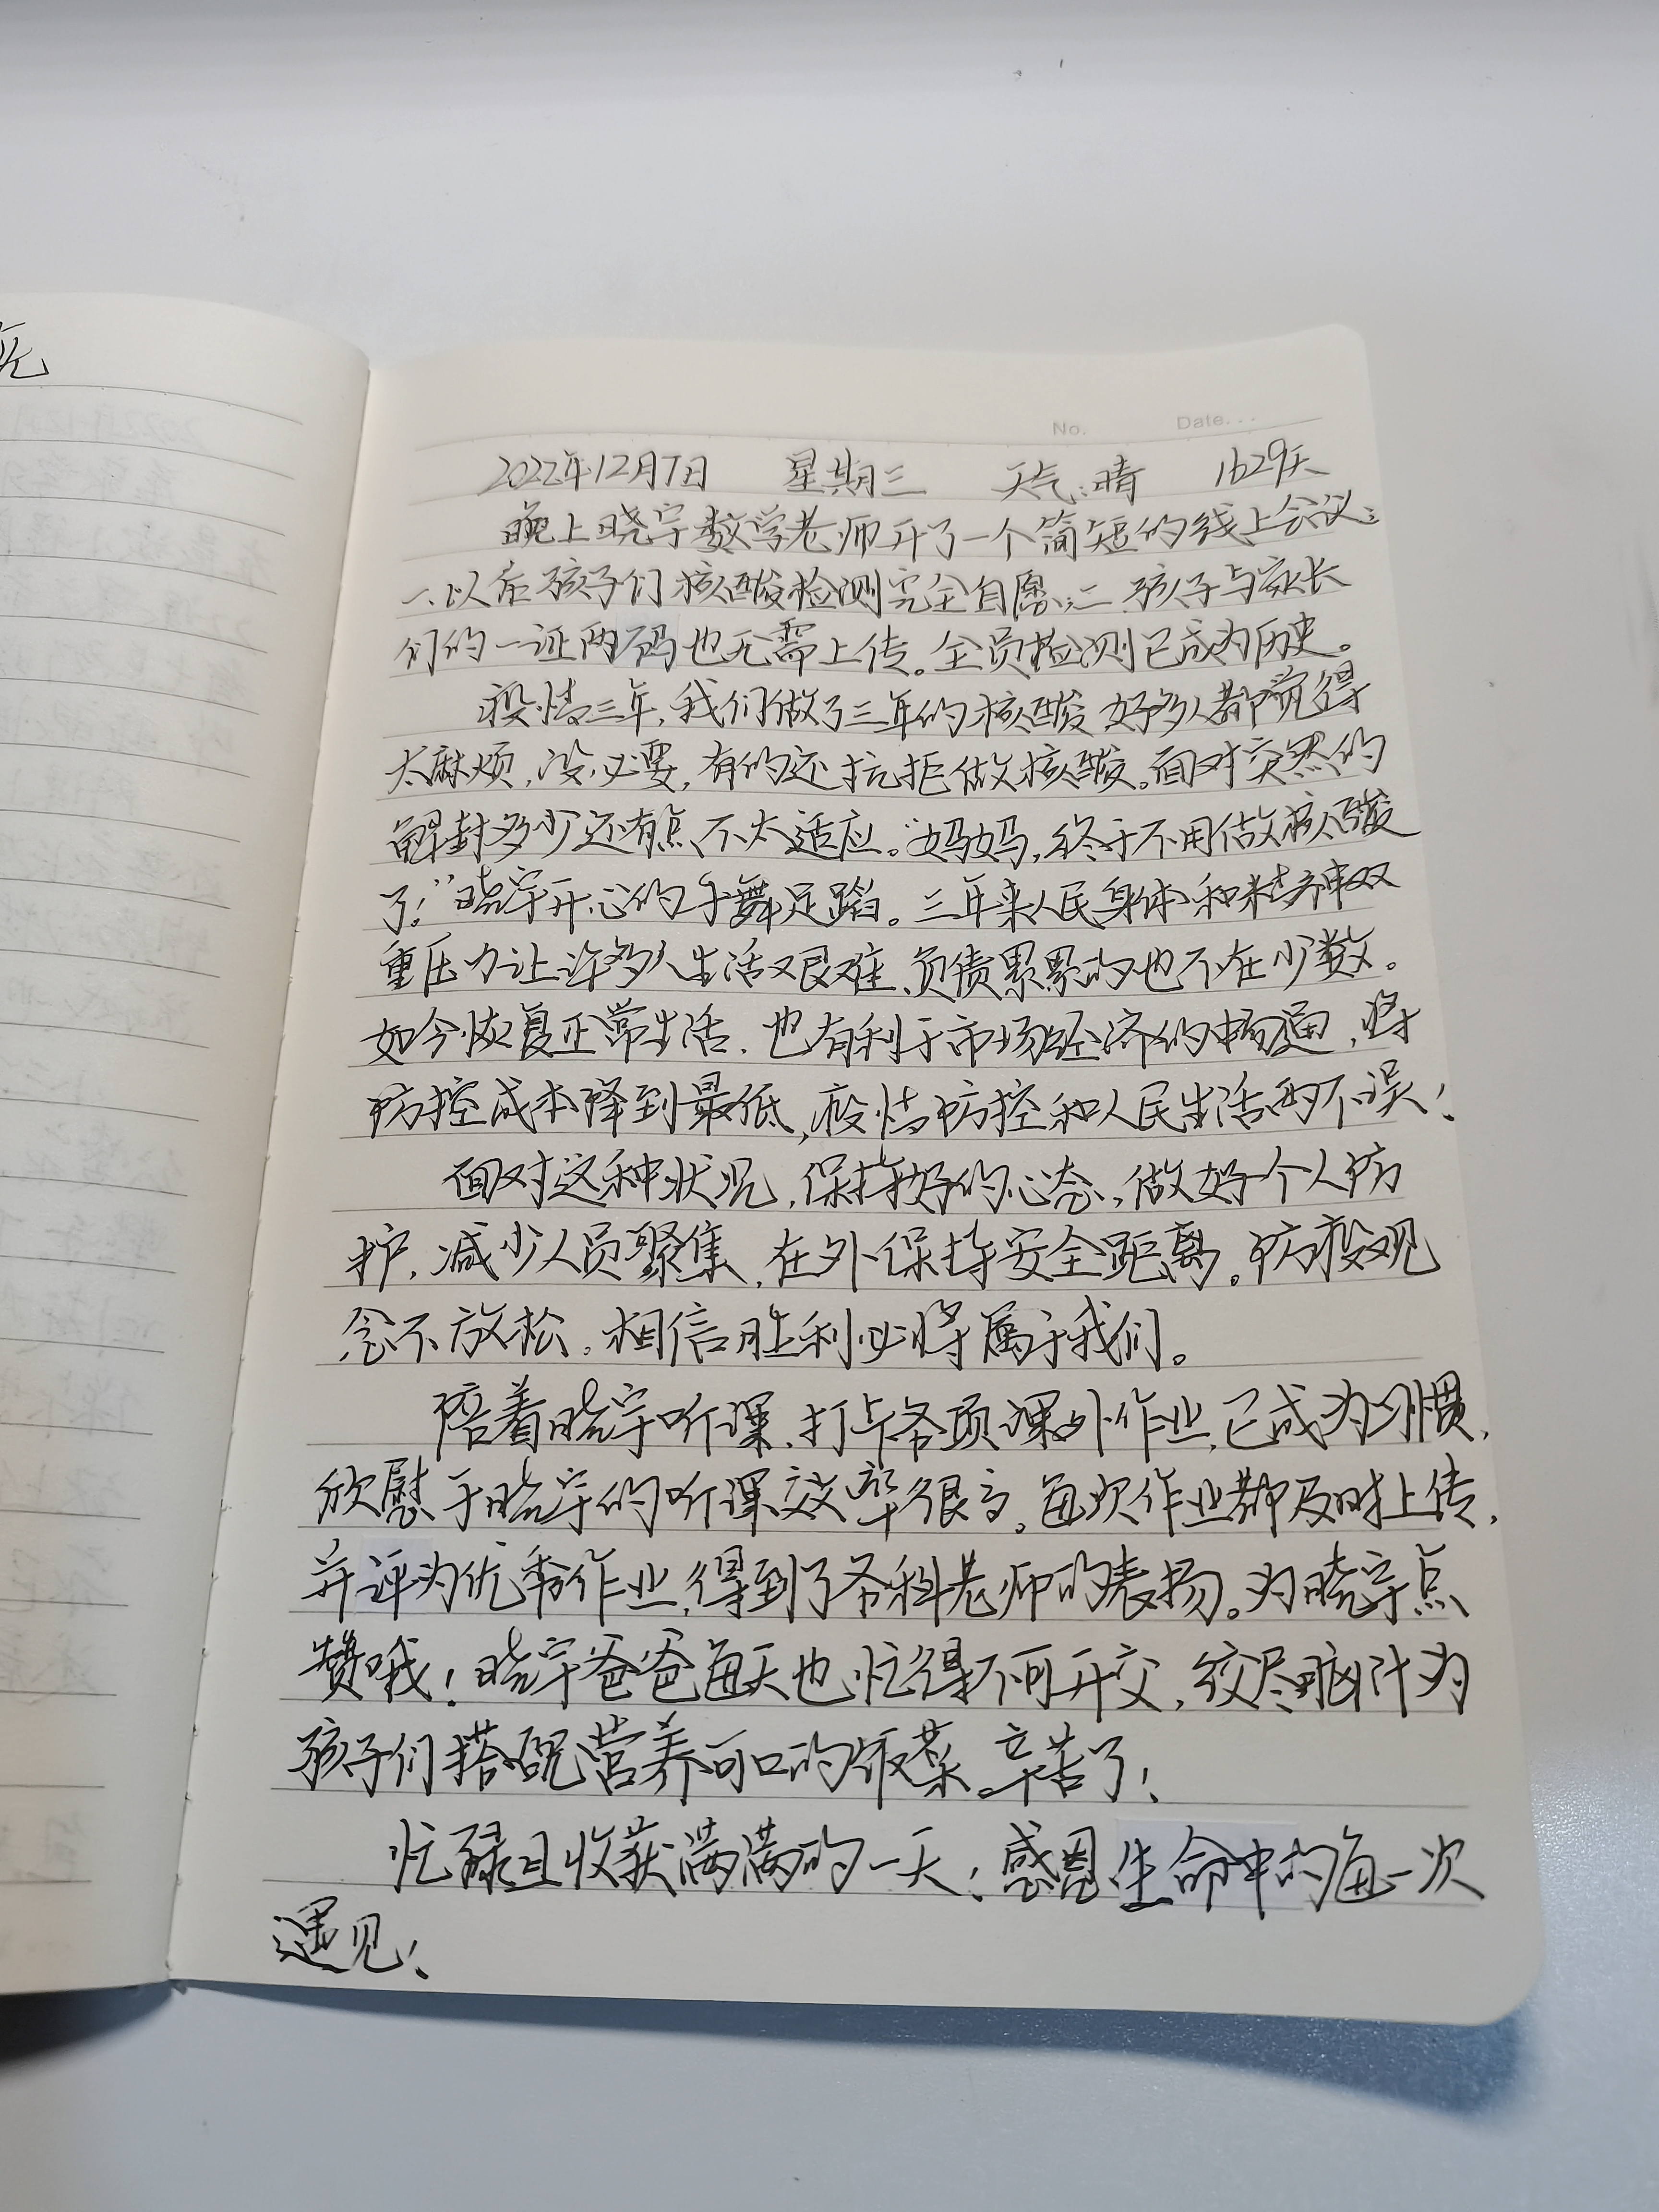 No.    Date. . .
2022年12月7日 星期三 天气:晴 1629天
晚上晓宇数学老师开了一个简短的线上会议:
一、以后孩子们核酸检测完全自愿;二、孩子与家长
们的一证两码也无需上传。全员检测已成为历史。
疫情三年,我们做了三年的核酸,好多人都觉得
太麻烦,没必要,有的还抗拒做核酸。面对突然的
解封多少还有点不太适应。“妈妈,终于不用做核酸
了!”晓宇开心的手舞足蹈。三年来人民身体和精神双
重压力让许多人生活艰难,负债累累的也不在少数。
如今恢复正常生活,也有利于市场经济的畅通,将
防控成本降到最低,疫情防控和人民生活两不误!
面对这种状况,保持好的心态,做好个人防
护,减少人员聚集,在外保持安全距离。防疫观
念不放松。相信胜利必将属于我们。
陪着晓宇听课,打卡各项课外作业,已成为习惯,
欣慰于晓宇的听课效率很高。每次作业都及时上传,
并评为优秀作业,得到了各科老师的表扬。为晓宇点
赞哦!晓宇爸爸每天也忙得不可开交,绞尽脑汁为
孩子们搭配营养可口的饭菜。辛苦了!
忙碌且收获满满的一天!感恩生命中的每一次
遇见!